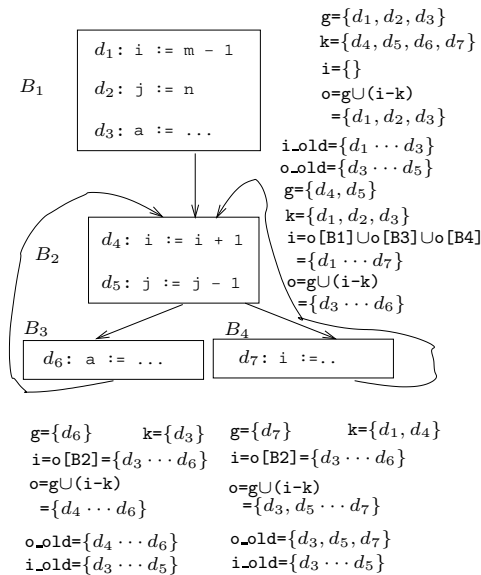 d₁: i := m - 1
B₁
d₂: j := n
d₃: a := ...
g={d₁, d₂, d₃}
k={d₄, d₅, d₆, d₇}
i={}
o=g∪(i-k)
={d₁, d₂, d₃}
i_old={d₁ ⋯ d₃}
o_old={d₃ ⋯ d₅}
g={d₄, d₅}
k={d₁, d₂, d₃}
i=o[B1]∪o[B3]∪o[B4]
={d₁ ⋯ d₇}
o=g∪(i-k)
={d₃ ⋯ d₆}
B₂
d₄: i := i + 1
d₅: j := j - 1
B₃
d₆: a := ...
B₄
d₇: i :=..
g={d₆} k={d₃}
i=o[B2]={d₃ ⋯ d₆}
o=g∪(i-k)
={d₄ ⋯ d₆}
o_old={d₄ ⋯ d₆}
i_old={d₃ ⋯ d₅}
g={d₇} k={d₁, d₄}
i=o[B2]={d₃ ⋯ d₆}
o=g∪(i-k)
={d₃, d₅ ⋯ d₇}
o_old={d₃, d₅, d₇}
i_old={d₃ ⋯ d₅}